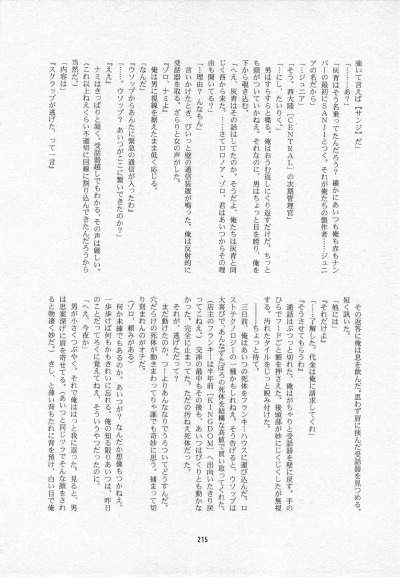 強いて言えば【サンジ】だ
「……あ？」
「灰青はそう名乗ってたんだろう？　確かにあいつも俺も赤もナン
バーの最初にＳＡＮＪＩとつく、それが俺たちの製作者……ジュニ
アの名だから」
「……ジュニア」
「そう、西大陸［ＣＥＮＴＲＡＬ］の次期管理官」
「……にし、たいりく。」
男はすらすらと喋る。俺はおうむ返しにくり返すだけだ。ちっと
も頭がついていかねえ。それなのに、男はちょっと目を瞠り、俺を
下から覗き込む。
「へえ、灰青はその話はしてたのか。そうだよ、俺たちは灰青と同
じく西から来た。……さてロロノア・ゾロ、君はあいつからその理
由も聞いてる？」
「……理由？　んなもん」
言いかけたとき、びいっと壁の通信装置が鳴った。俺は反射的に
受話器を取る。ざらりと女の声がした。
『ゾロ、ナミよ』
俺は男に視線を据えたまま低く応じる。
「なんだ」
『ウソップからあんたに緊急の通信が入ったわ』
「……。ウソップ？　あいつがどこに繋いできたのか？」
『ええ』
ナミはきっぱりと頷く。受話器越しでもわかる。その声は厳しい。
（これ以上ねえくらい不適切に回線に割り込んできたんだろうから
当然だ。）
「内容は」
『スクラップが逃げた、って一言』
その返答に俺は息を飲んだ。思わず肩に挟んだ受話器を見つめる。
短く訊いた。
「他には」
『それだけよ』
「……了解した。代金は俺に請求してくれ」
『そうさせてもらうわ』
通話はぶつっと切れた。俺はがちゃりと受話器を壁に戻す。手の
ひらでフードごと額を押さえた。後頭部が妙にじくじくしたが無視
する。汚れたタイルをじっと睨み付けた。
――ちょっと待て。
三日前、俺はあいつの死体をフランキーハウスに運び込んだ。ロ
ストテクノロジーの一種かもしれねえ。そう告げると、ウソップは
大喜びで、あんなずんぼろの死体を結構な高値で買い取ってくれた。
（店主のフランキーは半年前［ＫＩＮＧＤＯＭ］へ出向いたきり戻
ってこねえ。）交渉の最中もその後も、あいつはぴくりとも動かな
かった。完全に止まってた。ただの冴えねえ死体だった。
それが、逃げただって？
まだ動けたのか。つーよりあんななりでうろついてどうすんだ。
穴だらけの死体が動きまわってりゃ誰でも奇妙に思う。捕まって切
り刻まれんのがオチだ。
何か未練でもあるのか。あいつが？　なんだか想像もつかねえ。
一歩歩けば何もかもきれいに忘れる、俺の知る限りあいつは、昨日
のことだってろくに覚えてねえ、そういうやつだったのに。
「へえ、今夜か」
男が小さくつぶやく。それで俺はふっと我に返った。見ると、男
は思案深げに眉を寄せてる。（あいつと同じツラでそんな顔をされ
ると物凄く妙だ。）きし、と薄い背もたれに背を預け、白い目で俺
215